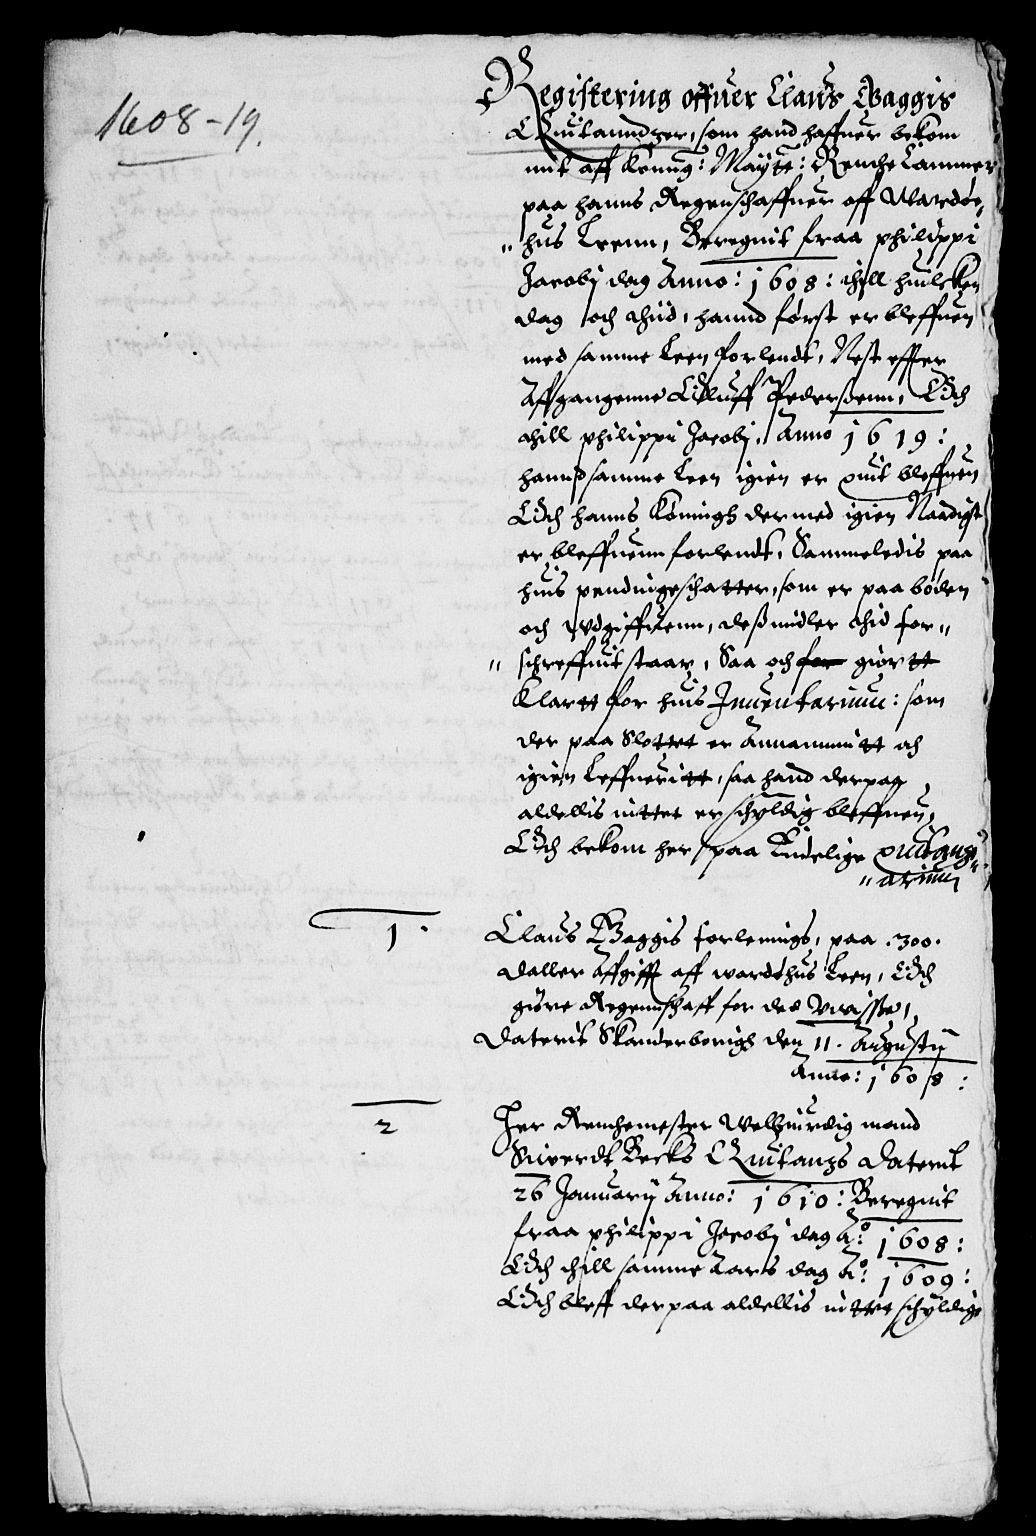 1608-19.
Registering offuer Claus Gaggis
Quitanndzer, som hand haffuer bekom
mit aff Konng: Maytt: Renthe Cammer
paa hanns Regenschaffuer aff Wardøe,
" hus Leenn, Beregnit fraa philippi
Jacobj dag Anno: 1608: thill huilcken
dag och thid, hannd først er bleffuen
med samme Leen forlendt, Nest effter
Affgangenne Oluff Pederssenn, Och
thill philippi Jacobj, Anno 1619:
hannd samme Leen igien er quit bleffuen
Och hanns Køningh dermed igien Naadigst
er bleffuenn forlendt, Sammeledis paa
huis pendingeschatter, som er paa bøden
och Udgiffuenn, dess midler thid for"
" schreffuit staar, Saa och for giortt
Klartt for huis Inuentarium: som
der paa Slottet er Annammitt och
igien Leffueritt, saa hand derpaa
aldellis inttet er schyldig bleffuen,
Och bekom her paa Endelige quitantz"
" arium
1.
Claus Gaggis forlenings, paa .300.
Daller Affgifft aff wardøhus Leen, Och
giøre Regennschaff for det Uuisse,
Daterit Skanderborigh den 11. Augustij
Anno: 1608:
2
Her Renthemester Welbiurdig mand
Siuerdt Becks Quitantzs Daterit
26 Januarij Anno: 1610: Beregnit
fraa philippi Jacobj dag Ao: 1608:
Och thill samme Aars dag Ao: 1609:
Och bleff der paa aldellis inttet schyldige